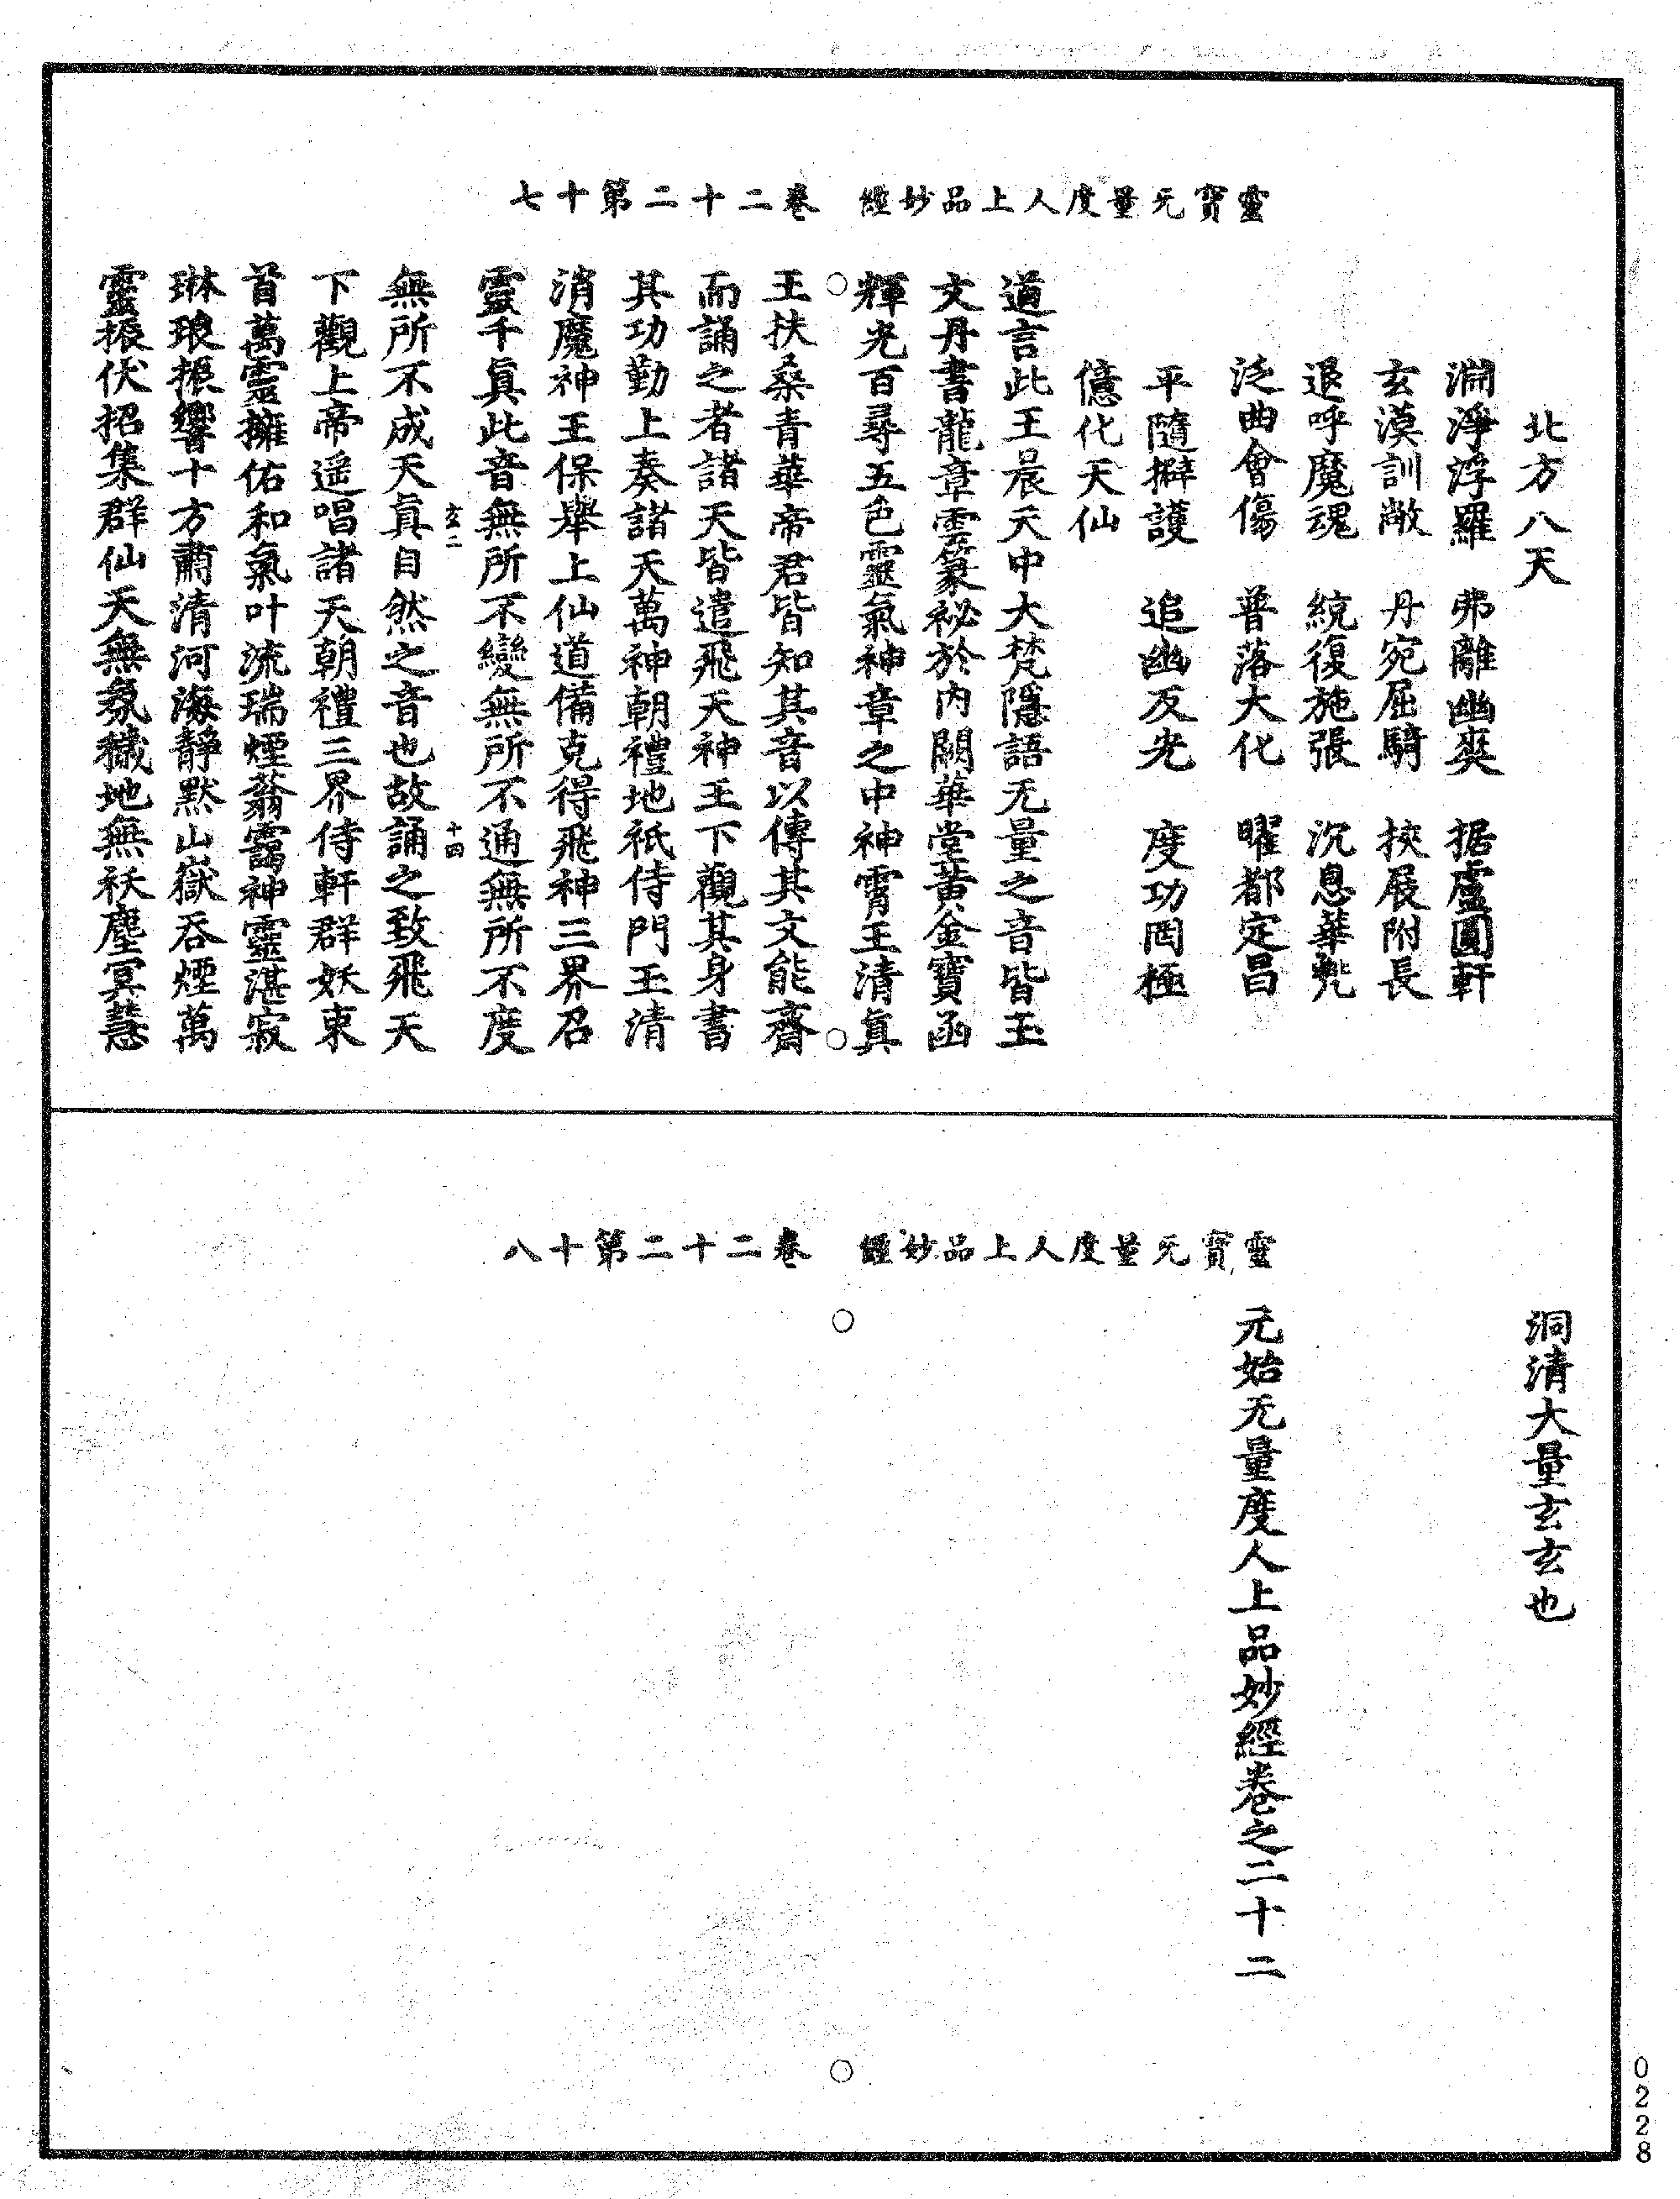 靈寶无量度人上品妙經　卷二十二第十七
北方八天
淵淨浮羅　弗離幽爽　据盧圓軒
玄漠訓敞　丹宛屈騎　挾展附長
退呼魔魂　統復施張　沉息華兠
泛曲會傷　普落大化　曜都定昌
平隨擗護　追幽反光　度功罔極
億化天仙
道言此王晨天中大梵隱語无量之音皆玉
文丹書龍章雲篆祕於內闕華堂黃金寶函
輝光百尋五色靈氣神章之中神霄王清真
王扶桑青華帝君皆知其音以傳其文能齋
而誦之者諸天皆遣飛天神王下觀其身書
其功勤上奏諸天萬神朝禮地祇侍門玉清
消魔神王保舉上仙道備克得飛神三界召
靈千真此音無所不變無所不通無所不度
玄二　十四
無所不成天真自然之音也故誦之致飛天
下觀上帝遥唱諸天朝禮三界侍軒群妖束
首萬靈擁佑和氣叶流瑞煙蓊靄神靈湛寂
琳琅振響十方肅清河海靜默山嶽吞煙萬
靈振伏招集群仙天無氛穢地無祅塵冥慧
靈寶无量度人上品妙經　卷二十二第十八
洞清大量玄玄也
元始无量度人上品妙經卷之二十二
0228